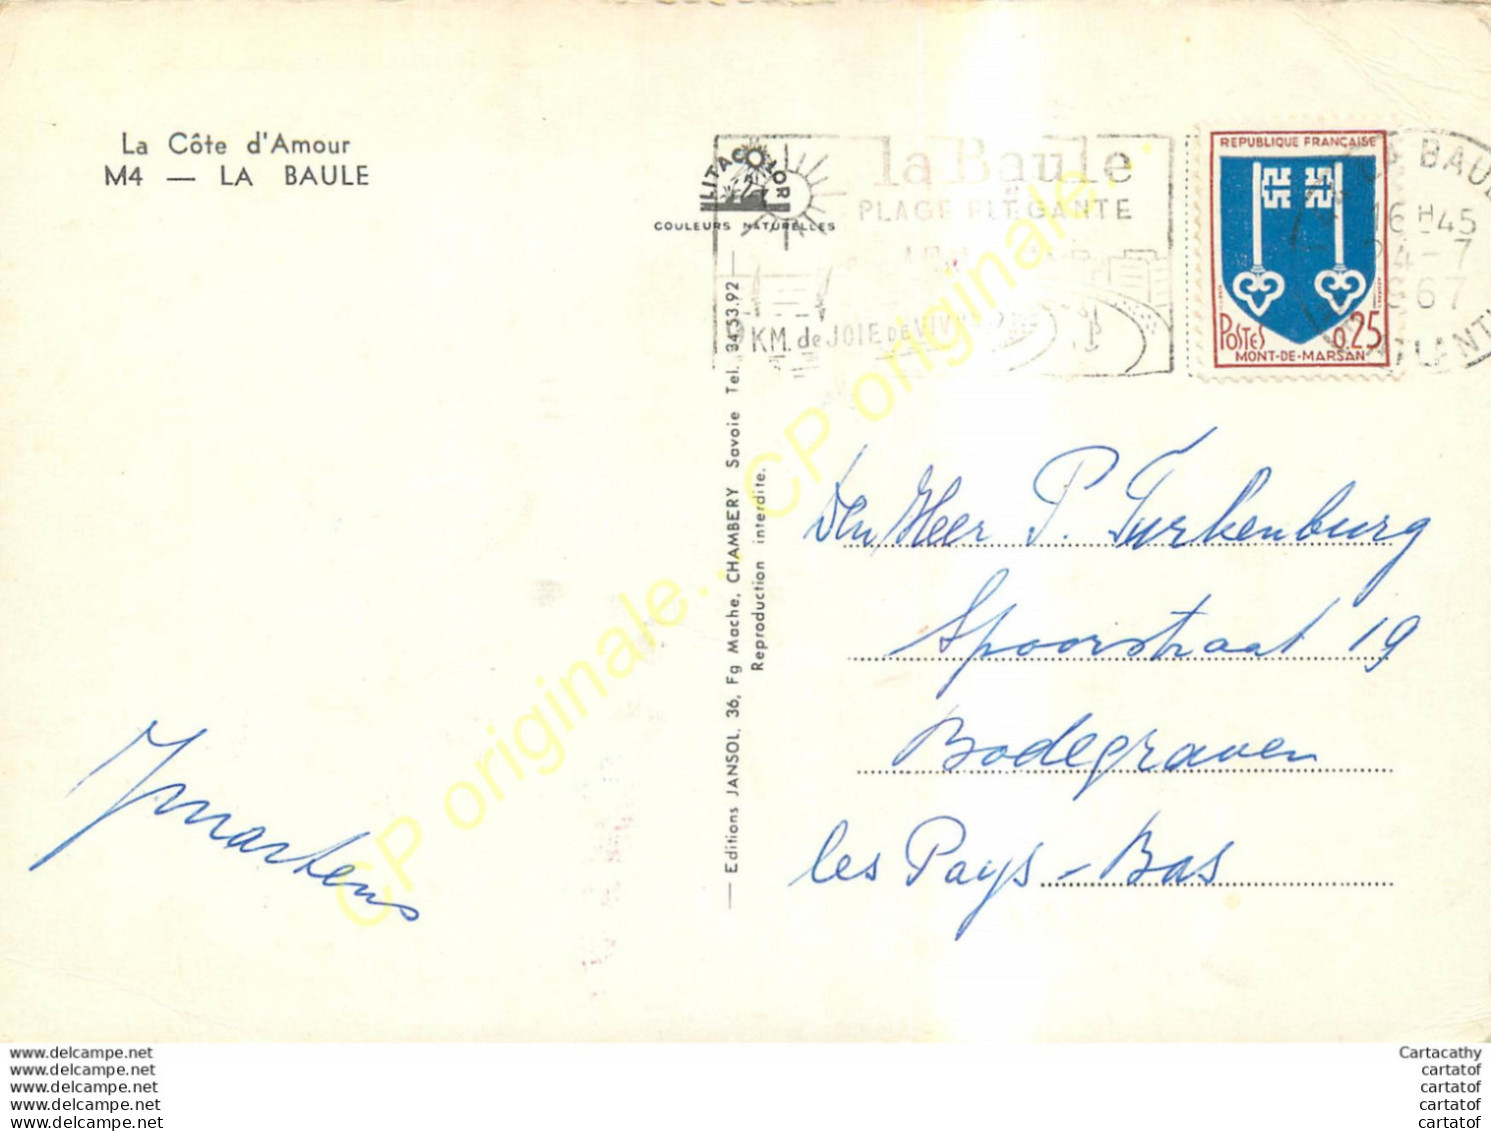 La Côte d'Amour
M4 — LA BAULE
LITACOLOR
COULEURS NATURELLES
la Baule
PLAGE ELEGANTE
9 KM. de JOIE DE VIVRE
REPUBLIQUE FRANÇAISE
POSTES 0,25
MONT-DE-MARSAN
BAULE
16 H 45
24 - 7
1967
ATLANTI
— Editions JANSOL, 36, Fg Mache, CHAMBERY Savoie Tel. 34.53.92 —
Reproduction interdite.
Den Heer P. Turkenburg
Spoorstraat 19
Bodegraven
les Pays-Bas
Jmartens
CP originale... CP originale...
www.delcampe.net
www.delcampe.net
www.delcampe.net
www.delcampe.net
www.delcampe.net
Cartacathy
cartatof
cartatof
cartatof
cartatof